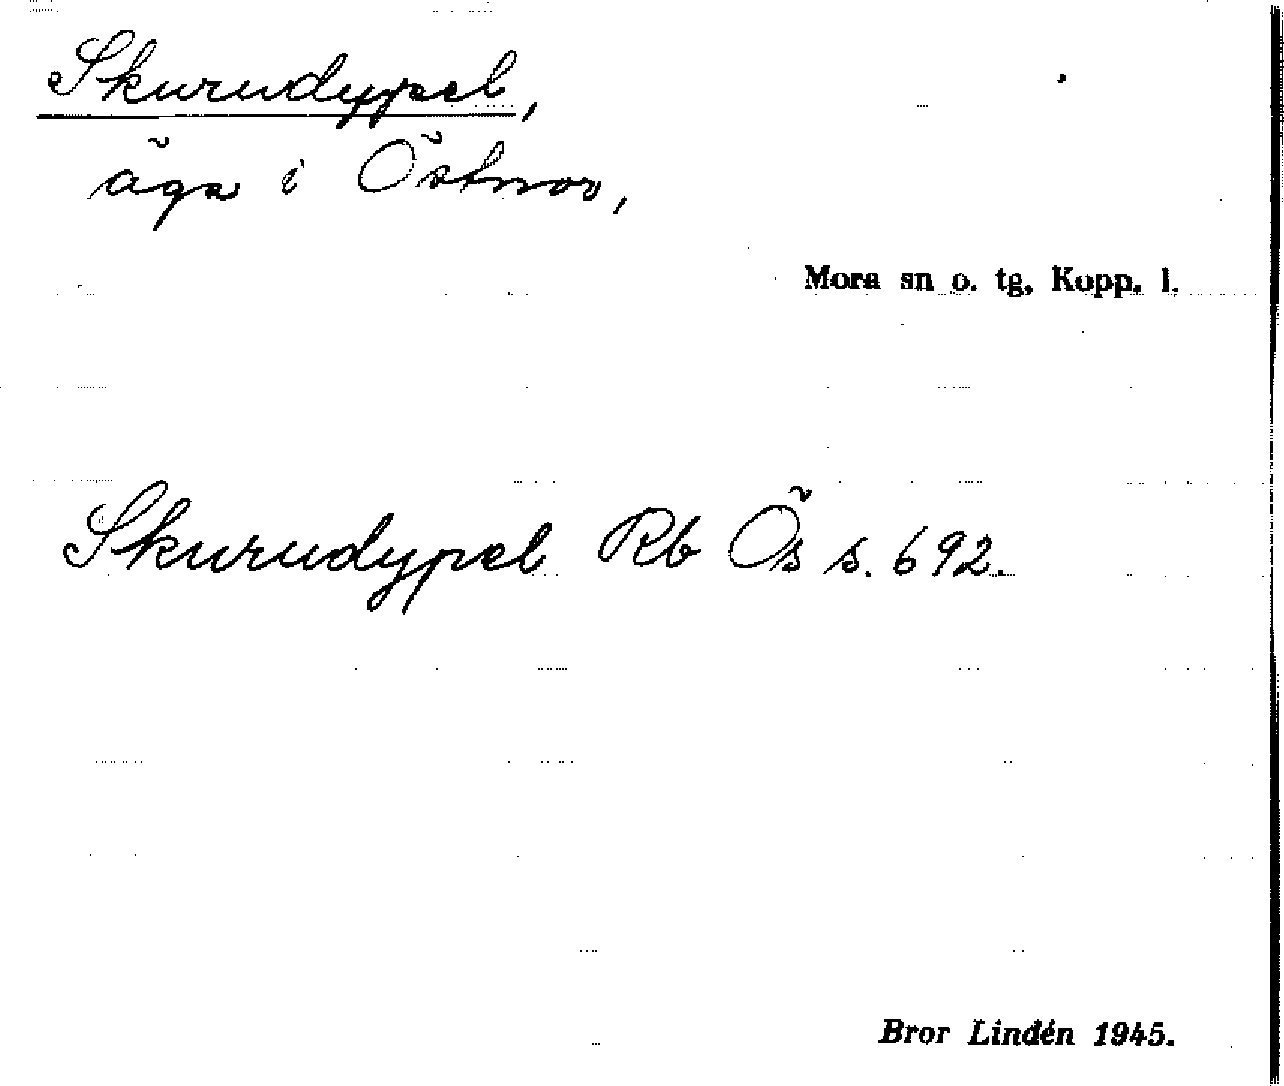 Skurudyppel,
äga i Östnor,
Mora sn o. tg, Kopp. l.
Skurudypel Rb Ös s. 692.
Bror Lindén 1945.